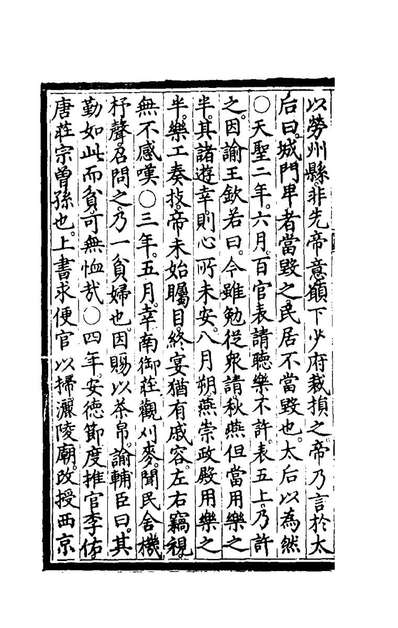 以勞州縣非先帝意願下少府裁損之帝乃言於太
后曰城門卑者當毀之民居不當毀也太后以為然
○天聖二年六月百官表請聽樂不許表五上乃許
之因諭王欽若曰今雖勉從衆請秋燕但當用樂之
半其諸遊幸則心所未安八月朔燕崇政殿用樂之
半樂工奏技帝未始矚目終宴猶有戚容左右竊視
無不感嘆○三年五月幸南御莊觀刈麥聞民舍機
杼聲召問之乃一貧婦也因賜以茶帛諭輔臣曰其
勤如此而貧可無恤哉○四年安德節度推官李佑
唐莊宗曾孫也上書求便官以掃灑陵廟改授西京